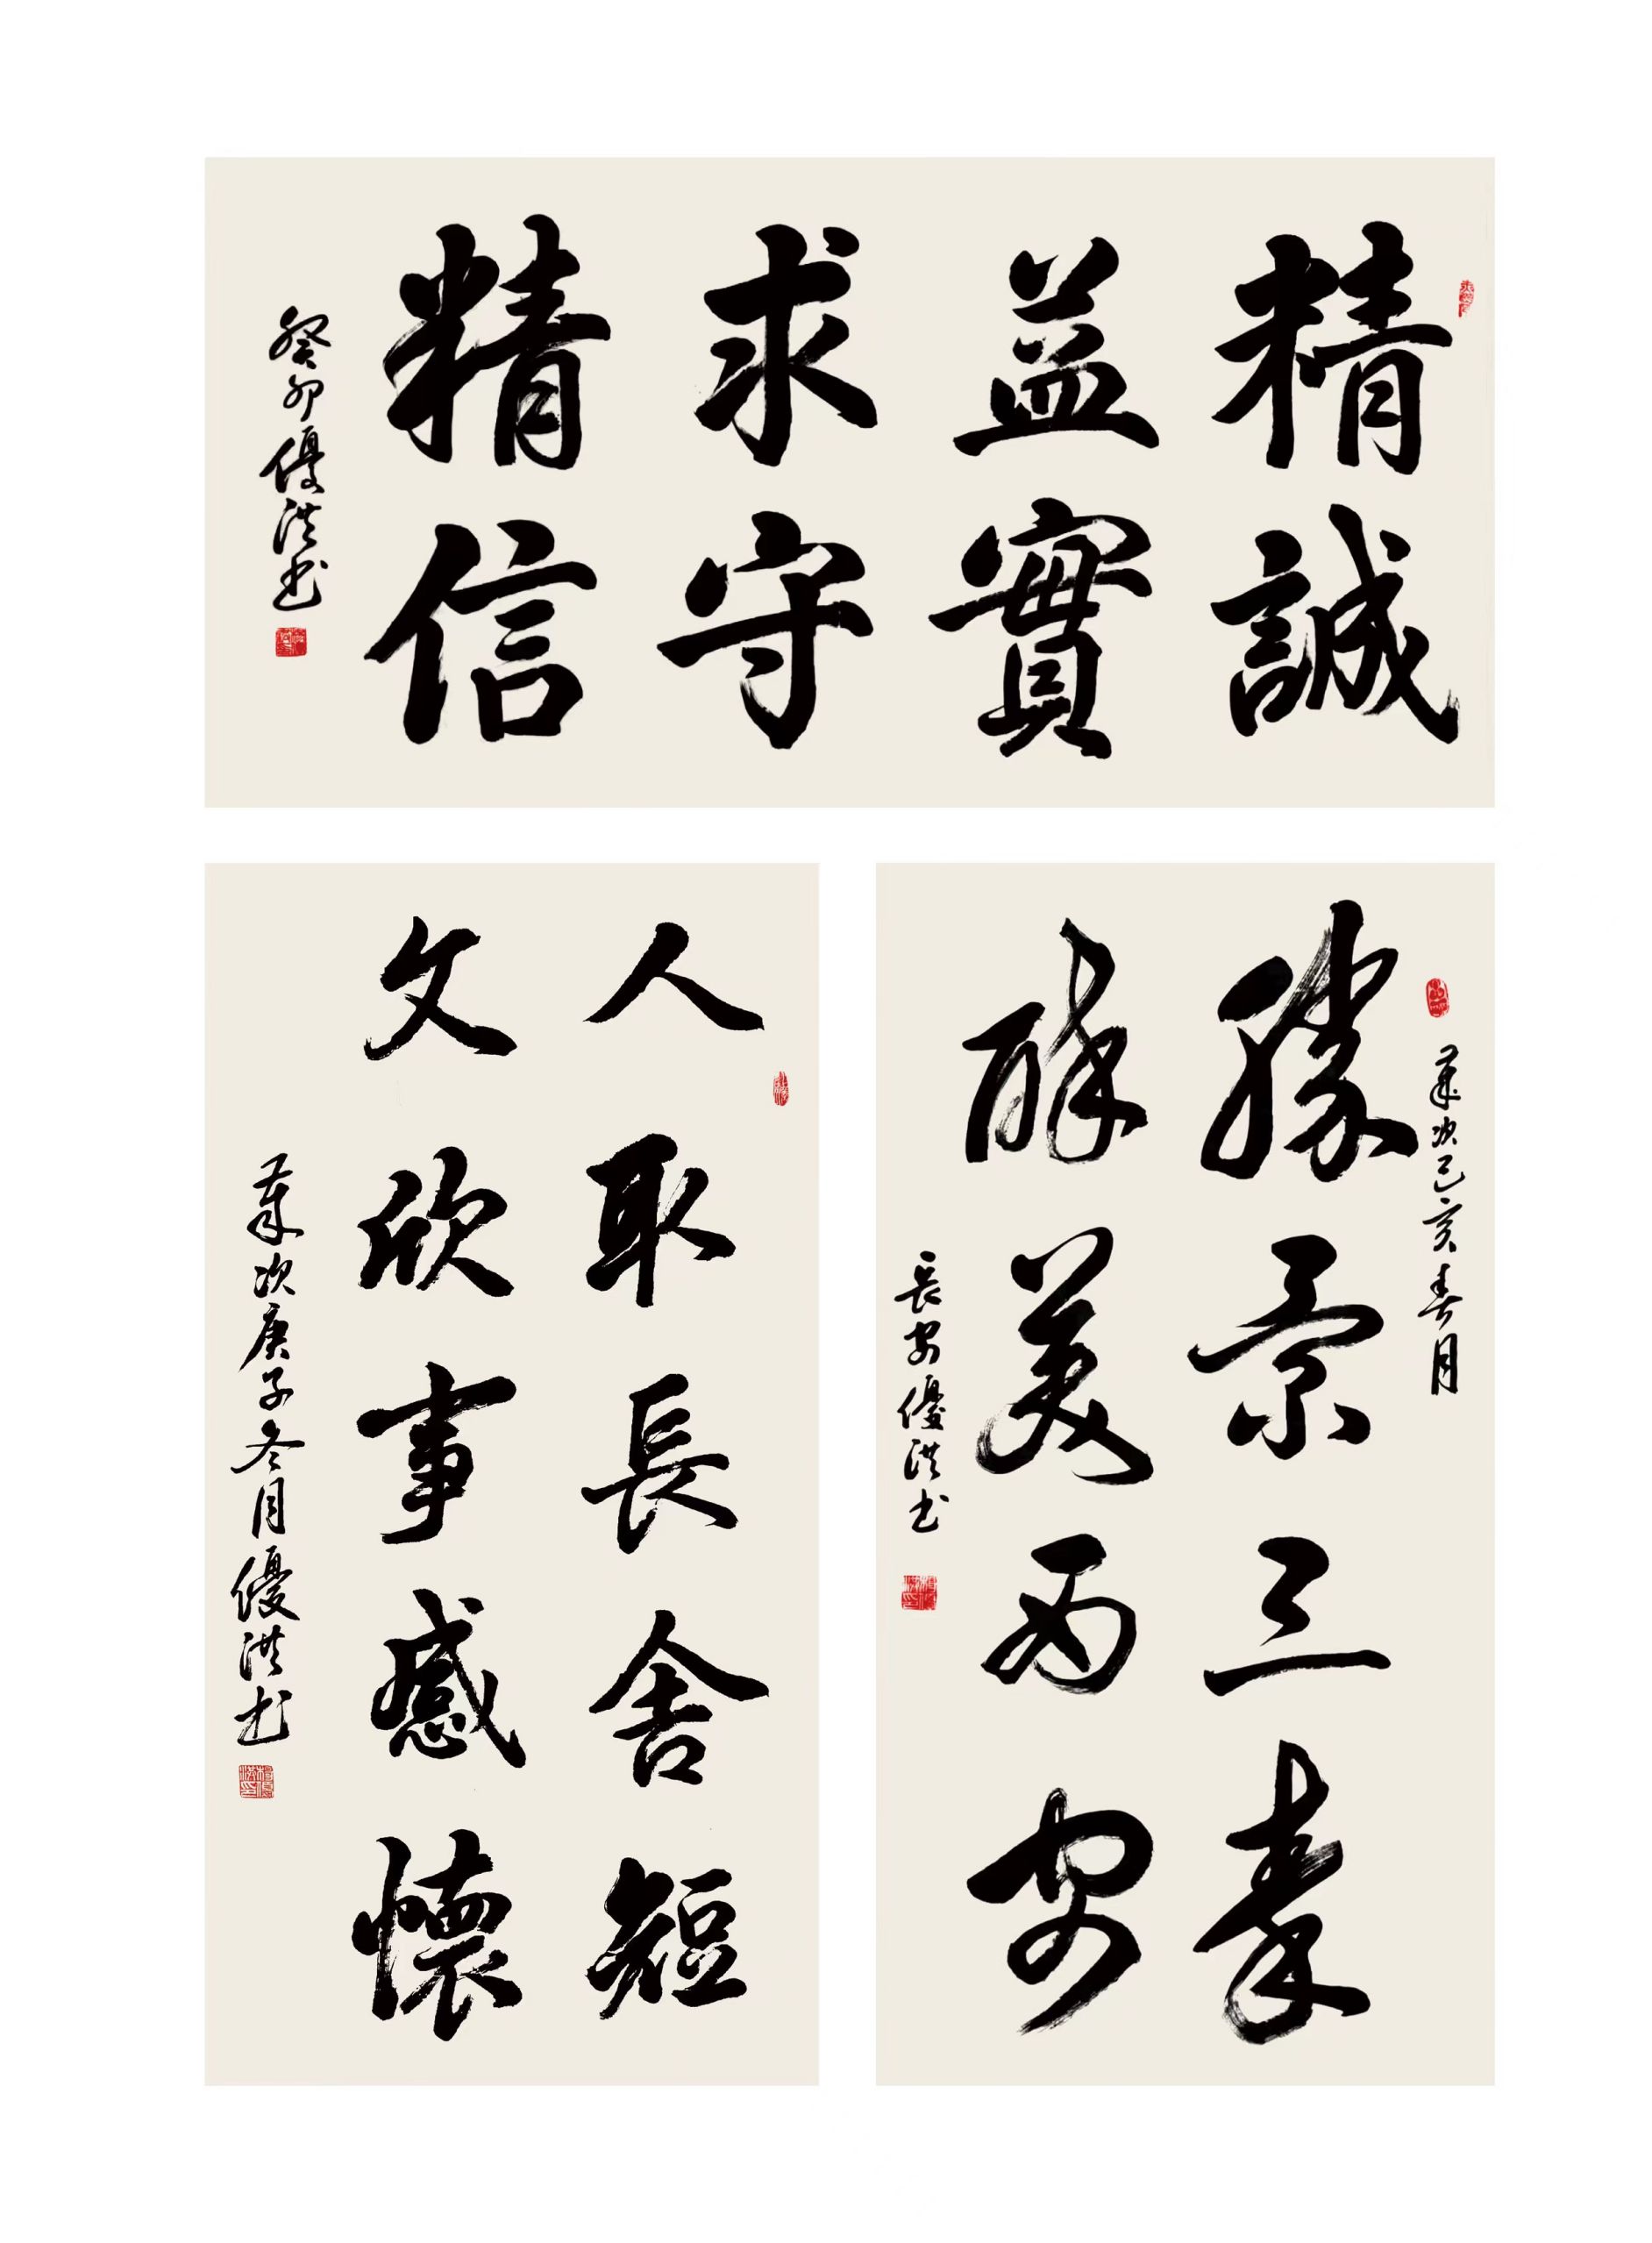 精誠
益實
求守
精信
癸卯優洪書
歲次己亥春月
勝景三秦
醉美西安
長安優洪書
人取長舍短
文欣事感懷
歲次庚子冬月優洪書